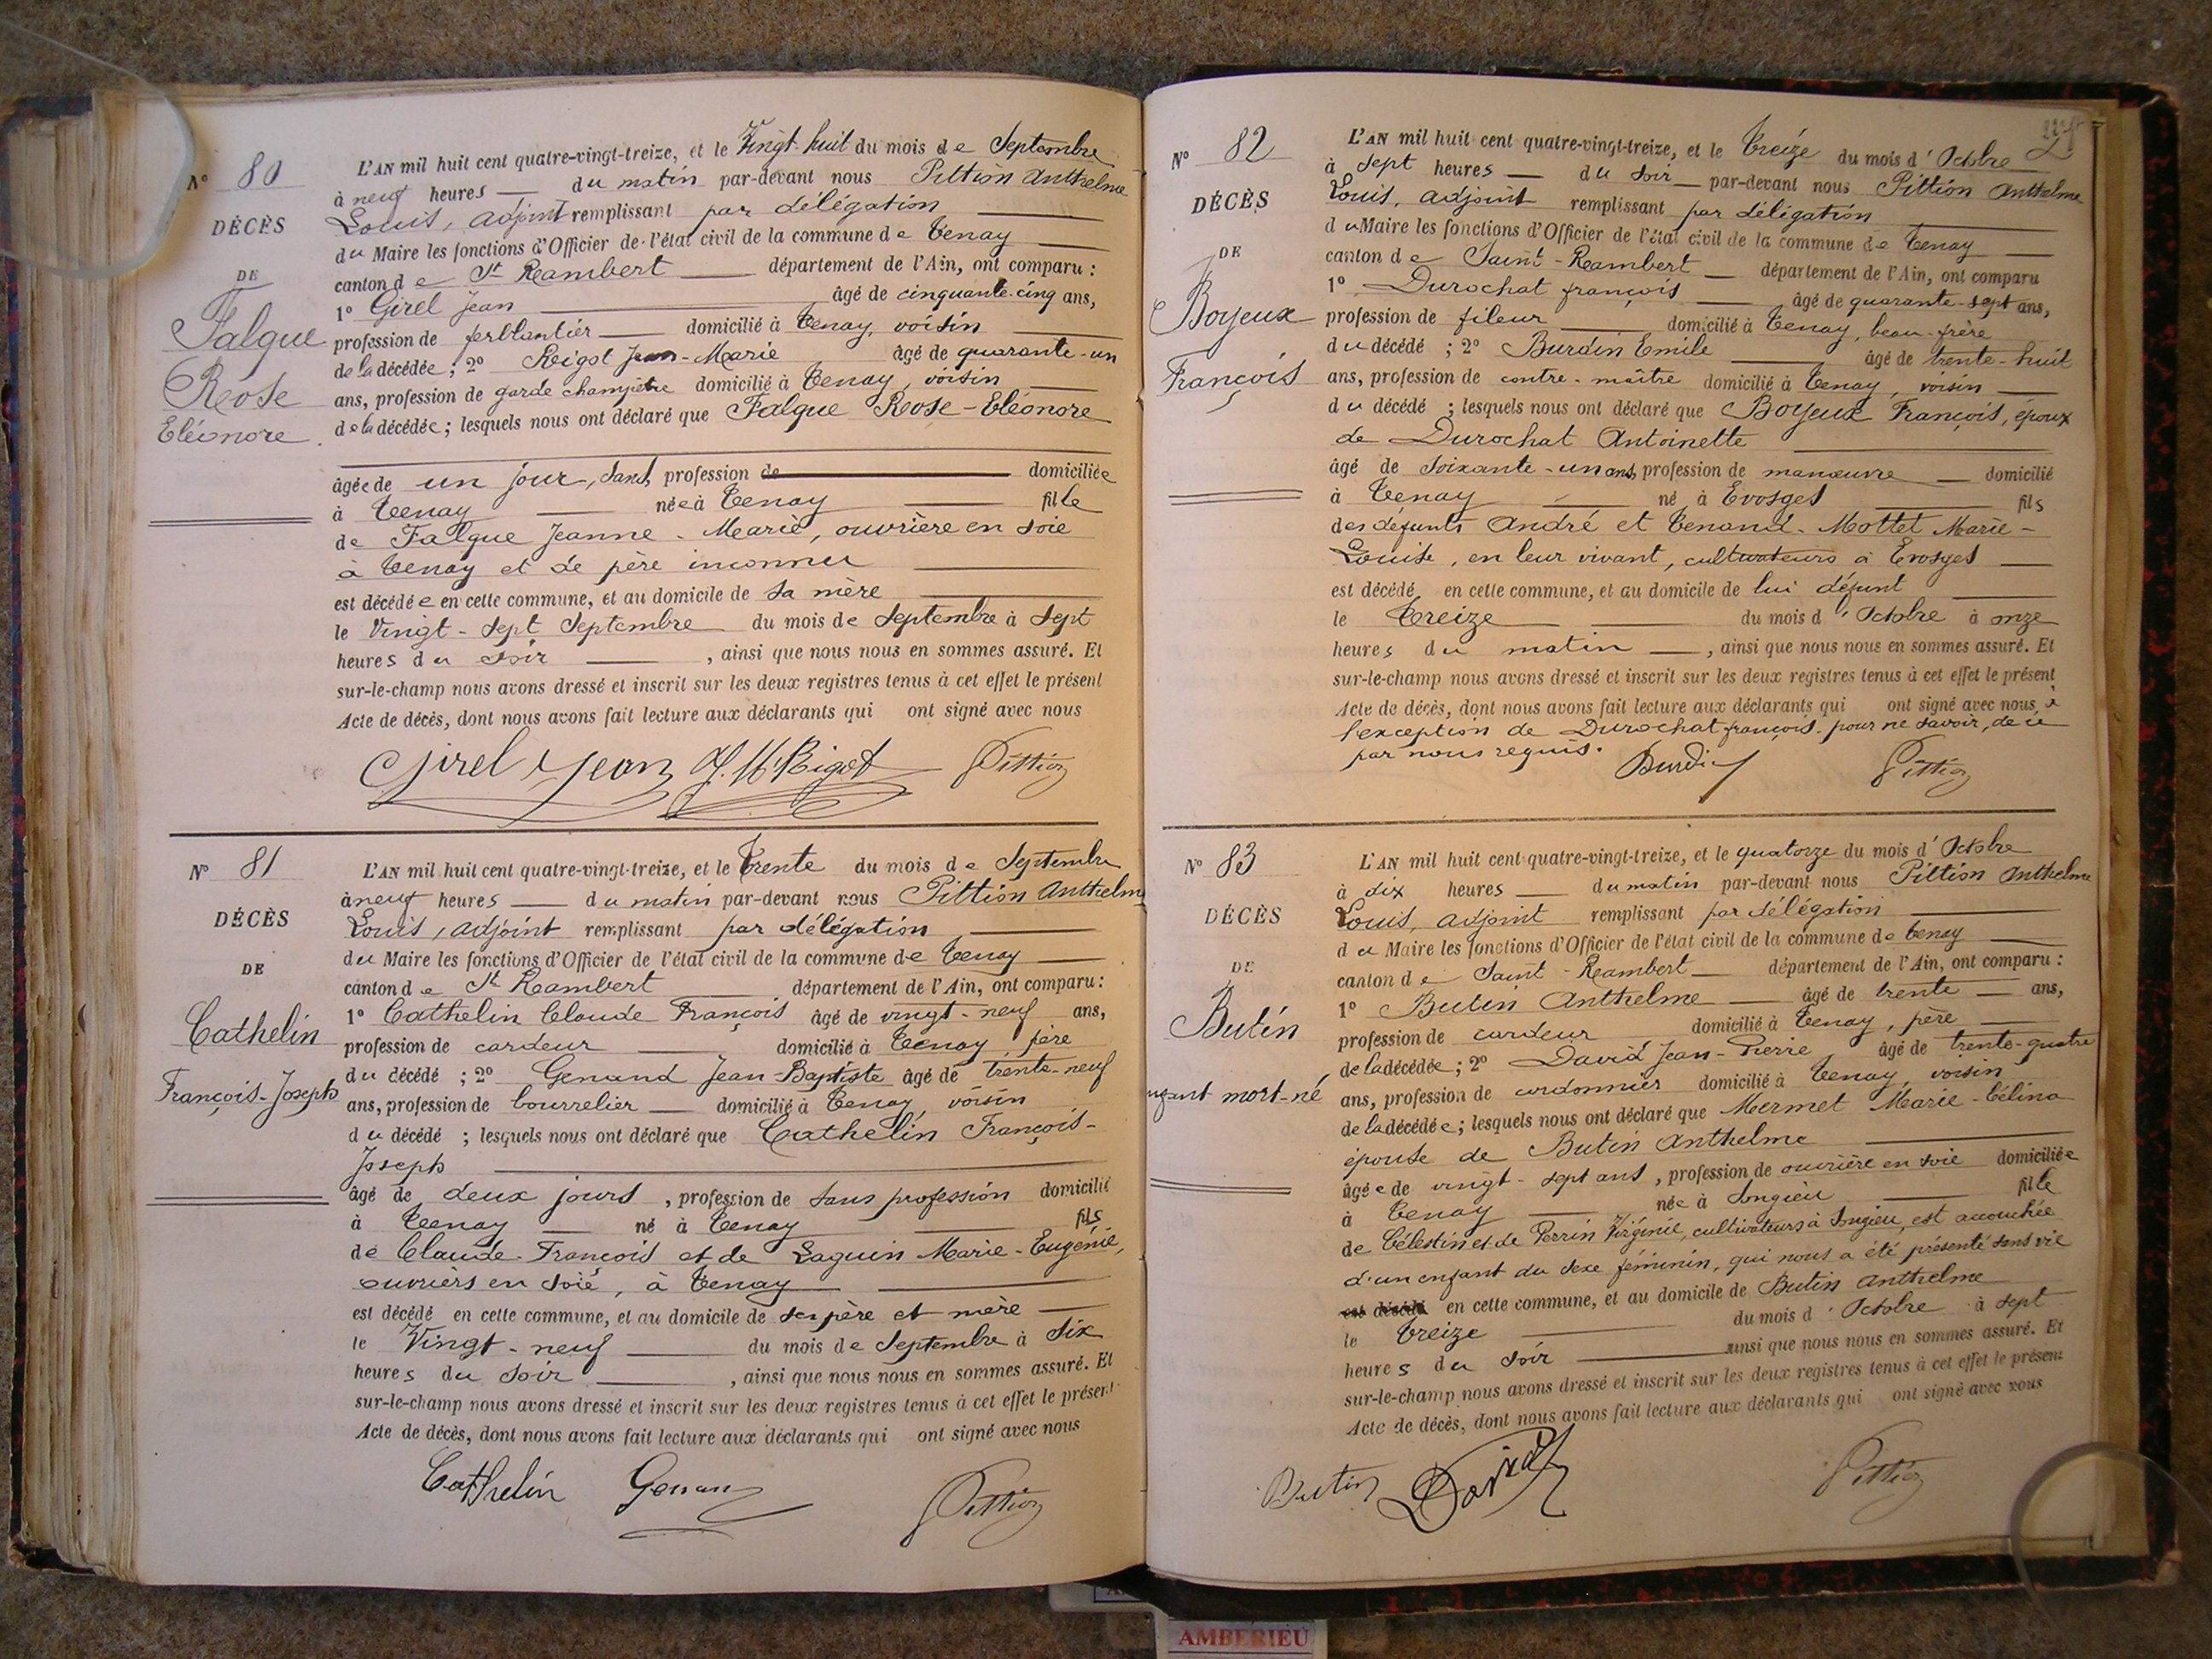 N° 80
DÉCÈS
DE
Falque
Rose
Eléonore
L'AN mil huit cent quatre-vingt-treize, et le Vingt-huit du mois de Septembre
à neuf heures — du matin par-devant nous Pittion Anthelme
Louis, adjoint remplissant par délégation
du Maire les fonctions d'Officier de l'état civil de la commune de Tenay
canton de St Rambert département de l'Ain, ont comparu :
1° Girel Jean âgé de cinquante-cinq ans,
profession de ferblantier domicilié à Tenay, voisin
de la décédée ; 2° Rigot Jean-Marie âgé de quarante-un
ans, profession de garde champêtre domicilié à Tenay, voisin
de la décédée ; lesquels nous ont déclaré que Falque Rose-Eléonore
âgée de un jour, sans profession de domiciliée
à Tenay née à Tenay fille
de Falque Jeanne-Marie, ouvrière en soie
à Tenay et de père inconnu
est décédée en cette commune, et au domicile de sa mère
le Vingt-sept Septembre du mois de Septembre à sept
heures du soir , ainsi que nous nous en sommes assuré. Et
sur-le-champ nous avons dressé et inscrit sur les deux registres tenus à cet effet le présent
Acte de décès, dont nous avons fait lecture aux déclarants qui ont signé avec nous
Girel Jean J. M. Rigot Pittion
N° 81
DÉCÈS
DE
Cathelin
François-Joseph
L'AN mil huit cent quatre-vingt-treize, et le Trente du mois de Septembre
à neuf heures — du matin par-devant nous Pittion Anthelme
Louis, adjoint remplissant par délégation
du Maire les fonctions d'Officier de l'état civil de la commune de Tenay
canton de St Rambert département de l'Ain, ont comparu :
1° Cathelin Claude François âgé de vingt-neuf ans,
profession de cardeur domicilié à Tenay père
du décédé ; 2° Genand Jean-Baptiste âgé de trente-neuf
ans, profession de bourrelier domicilié à Tenay, voisin
du décédé ; lesquels nous ont déclaré que Cathelin François-
Joseph
âgé de deux jours , profession de sans profession domicilié
à Tenay né à Tenay fils
de Claude-François et de Laguin Marie-Eugénie,
ouvriers en soie, à Tenay
est décédé en cette commune, et au domicile de ses père et mère
le Vingt-neuf du mois de Septembre à six
heures du soir , ainsi que nous nous en sommes assuré. Et
sur-le-champ nous avons dressé et inscrit sur les deux registres tenus à cet effet le présent
Acte de décès, dont nous avons fait lecture aux déclarants qui ont signé avec nous
Cathelin Genand Pittion
N° 82
DÉCÈS
DE
Boyeux
François
L'AN mil huit cent quatre-vingt-treize, et le Treize du mois d'Octobre
à sept heures — du soir par-devant nous Pittion Anthelme
Louis, adjoint remplissant par délégation
du Maire les fonctions d'Officier de l'état civil de la commune de Tenay
canton de Saint-Rambert département de l'Ain, ont comparu
1° Durochat françois âgé de quarante-sept ans,
profession de fileur domicilié à Tenay, beau-frère
du décédé ; 2° Burdin Emile âgé de trente-huit
ans, profession de contre-maître domicilié à Tenay, voisin
du décédé ; lesquels nous ont déclaré que Boyeux François, époux
de Durochat Antoinette
âgé de soixante-un ans, profession de manœuvre domicilié
à Tenay né à Evosges fils
des défunts André et Tenand-Mottet Marie-
Louise, en leur vivant, cultivateurs à Evosges
est décédé en cette commune, et au domicile de lui défunt
le Treize du mois d'Octobre à onze
heures du matin , ainsi que nous nous en sommes assuré. Et
sur-le-champ nous avons dressé et inscrit sur les deux registres tenus à cet effet le présent
Acte de décès, dont nous avons fait lecture aux déclarants qui ont signé avec nous, à
l'exception de Durochat françois pour ne savoir, de ce
par nous requis.
Burdin Pittion
N° 83
DÉCÈS
DE
Butin
enfant mort-né
L'AN mil huit cent quatre-vingt-treize, et le quatorze du mois d'Octobre
à dix heures — du matin par-devant nous Pittion Anthelme
Louis, adjoint remplissant par délégation
du Maire les fonctions d'Officier de l'état civil de la commune de Tenay
canton de Saint-Rambert département de l'Ain, ont comparu :
1° Butin Anthelme âgé de trente ans,
profession de cardeur domicilié à Tenay, père
de la décédée ; 2° David Jean-Pierre âgé de trente-quatre
ans, profession de cordonnier domicilié à Tenay, voisin
de la décédée ; lesquels nous ont déclaré que Mermet Marie-Célina
épouse de Butin Anthelme
âgée de vingt-sept ans , profession de ouvrière en soie domiciliée
à Tenay née à Songieu fille
de Célestin et de Perrin Virginie, cultivateurs à Songieu, est accouchée
d'un enfant du sexe féminin, qui nous a été présenté sans vie
est décédé en cette commune, et au domicile de Butin Anthelme
le Treize du mois d'Octobre à sept
heures du soir ainsi que nous nous en sommes assuré. Et
sur-le-champ nous avons dressé et inscrit sur les deux registres tenus à cet effet le présent
Acte de décès, dont nous avons fait lecture aux déclarants qui ont signé avec nous
Butin David Pittion
AMBERIEU